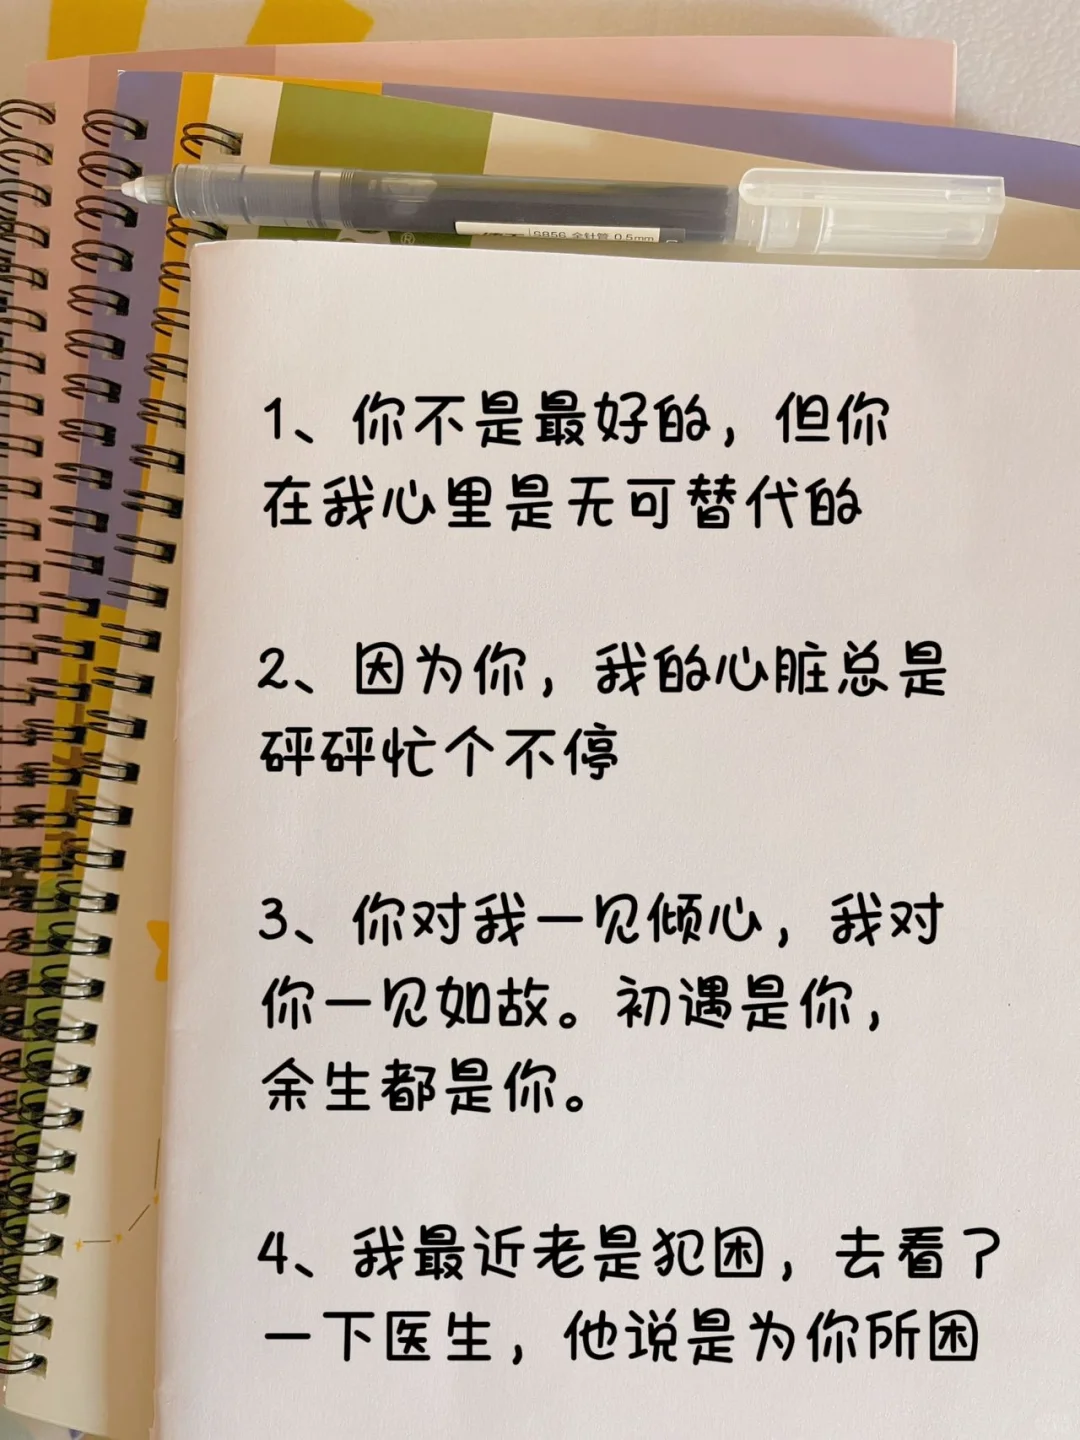 S856 全针管 0.5mm
®
1、你不是最好的，但你
在我心里是无可替代的
2、因为你，我的心脏总是
砰砰忙个不停
3、你对我一见倾心，我对
你一见如故。初遇是你，
余生都是你。
4、我最近老是犯困，去看了
一下医生，他说是为你所困